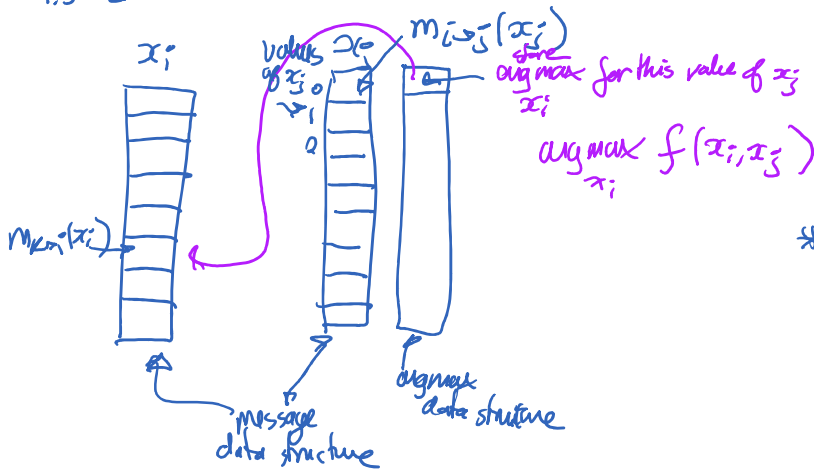 x_i
values
of x_j
x_j
0
1
2
m_{i→j}(x_j)
store
argmax for this value of x_j
x_i
argmax f(x_i, x_j)
x_i
m_{k→i}(x_i)
message
data structure
argmax
data structure